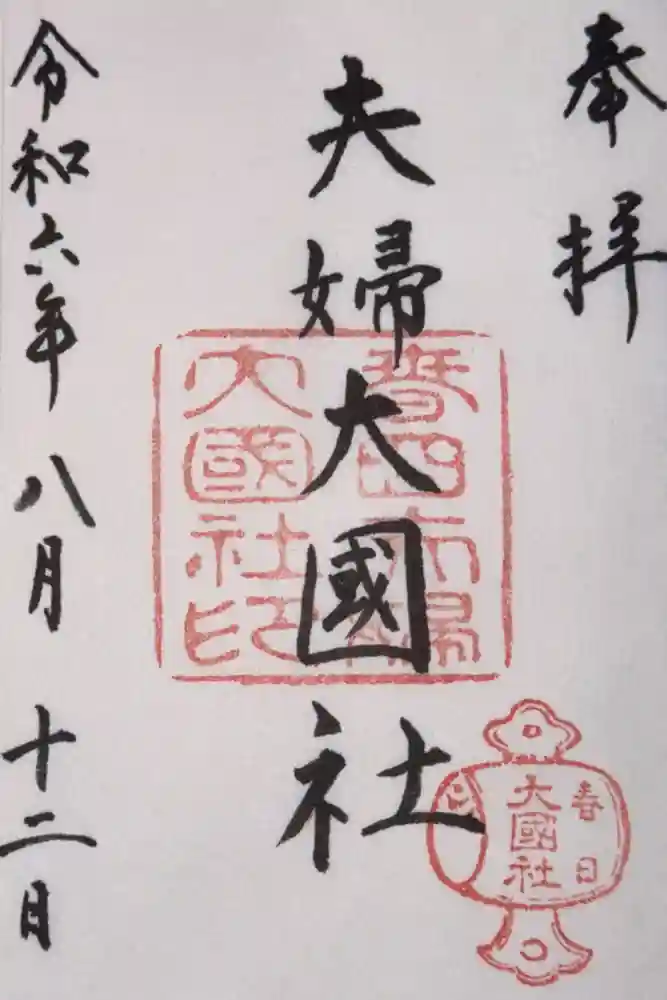 奉拝
夫婦大國社
令和六年 八月 十二日
春日夫婦
大國社印
春日
大國社